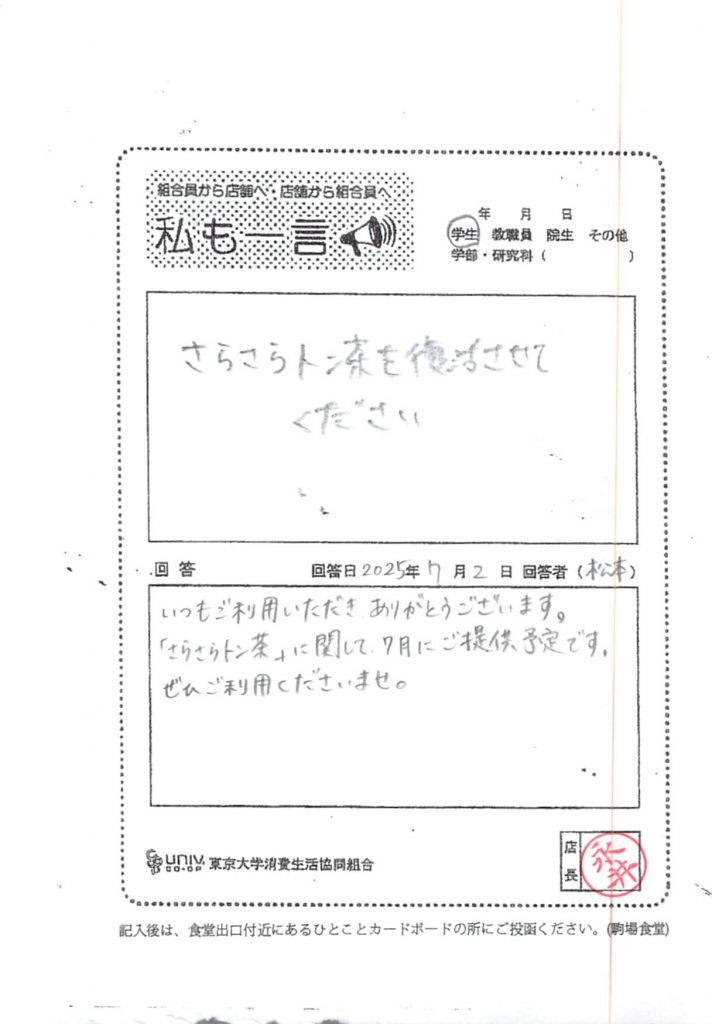 組合員から店舗へ・店舗から組合員へ
私も一言
年 月 日
学生 教職員 院生 その他
学部・研究科( )
さらさらトン茶を復活させて
ください
回答 回答日2025年7月2日 回答者(松本)
いつもご利用いただきありがとうございます。
「さらさらトン茶」に関して、7月にご提供予定です。
ぜひご利用くださいませ。
UNIV. CO-OP 東京大学消費生活協同組合
店長 永井
記入後は、食堂出口付近にあるひとことカードボードの所にご投函ください。(駒場食堂)